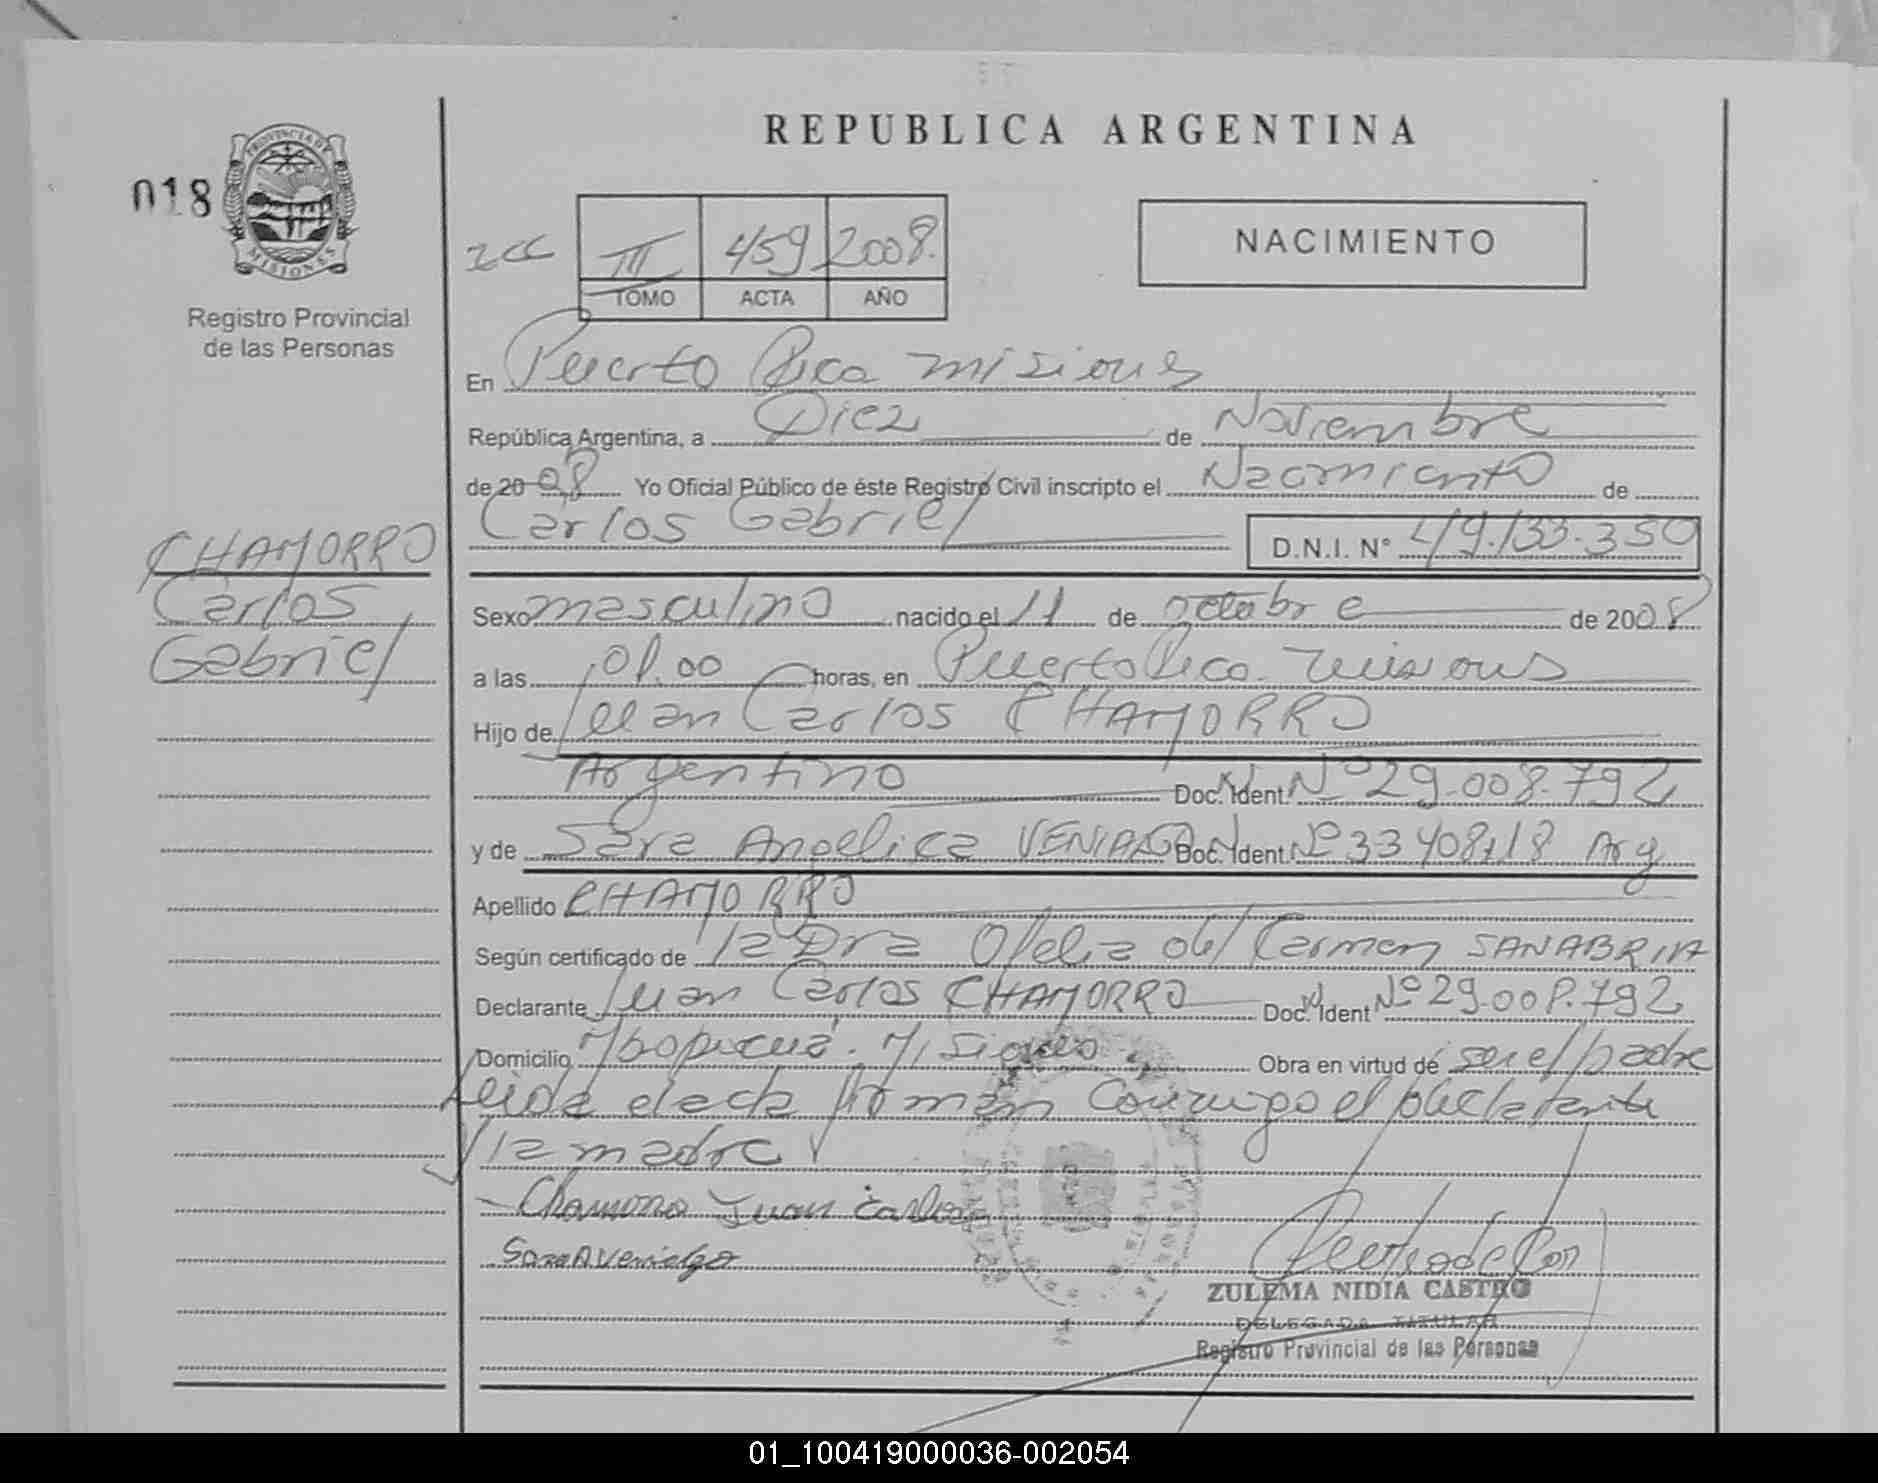 REPUBLICA ARGENTINA
018
PROVINCIA DE
MISIONES
Registro Provincial
de las Personas
III 459 2008.
TOMO ACTA AÑO
NACIMIENTO
En Puerto Rico misiones
República Argentina, a Diez de Noviembre
de 2008 Yo Oficial Público de éste Registro Civil inscripto el Nacimiento de
Carlos Gabriel D.N.I. N° 49.133.350
CHAMORRO
Carlos
Gabriel
Sexo masculino nacido el 11 de octubre de 2008
a las 01.00 horas, en Puerto Rico. misiones
Hijo de Juan Carlos CHAMORRO
Argentino Doc. Ident. Nº 29.008.792
y de Sara Angelica Doc. Ident. Nº 33 408 Arg
Apellido CHAMORRO
Según certificado de la Dra Ofelia del Carmen SANABRIA
Declarante Juan Carlos CHAMORRO Doc. Ident Nº 29.008.792
Domicilio Misiones Obra en virtud de ser el padre
Leida el acta firman conmigo el
y la madre
Chamorro Juan Carlos
ZULEMA NIDIA CASTRO
DELEGADA TITULAR
Registro Provincial de las Personas
01_100419000036-002054